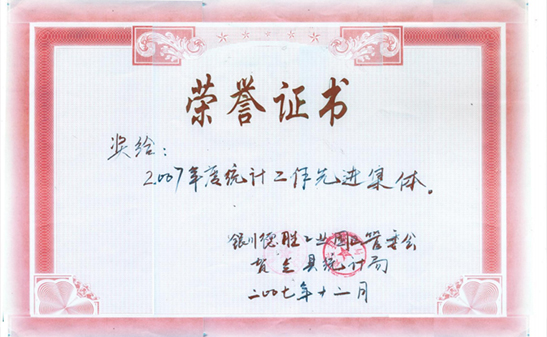 荣誉证书
奖给:
2007年度统计工作先进集体。
银川德胜工业园区管委会
贺兰县统计局
二〇〇七年十二月